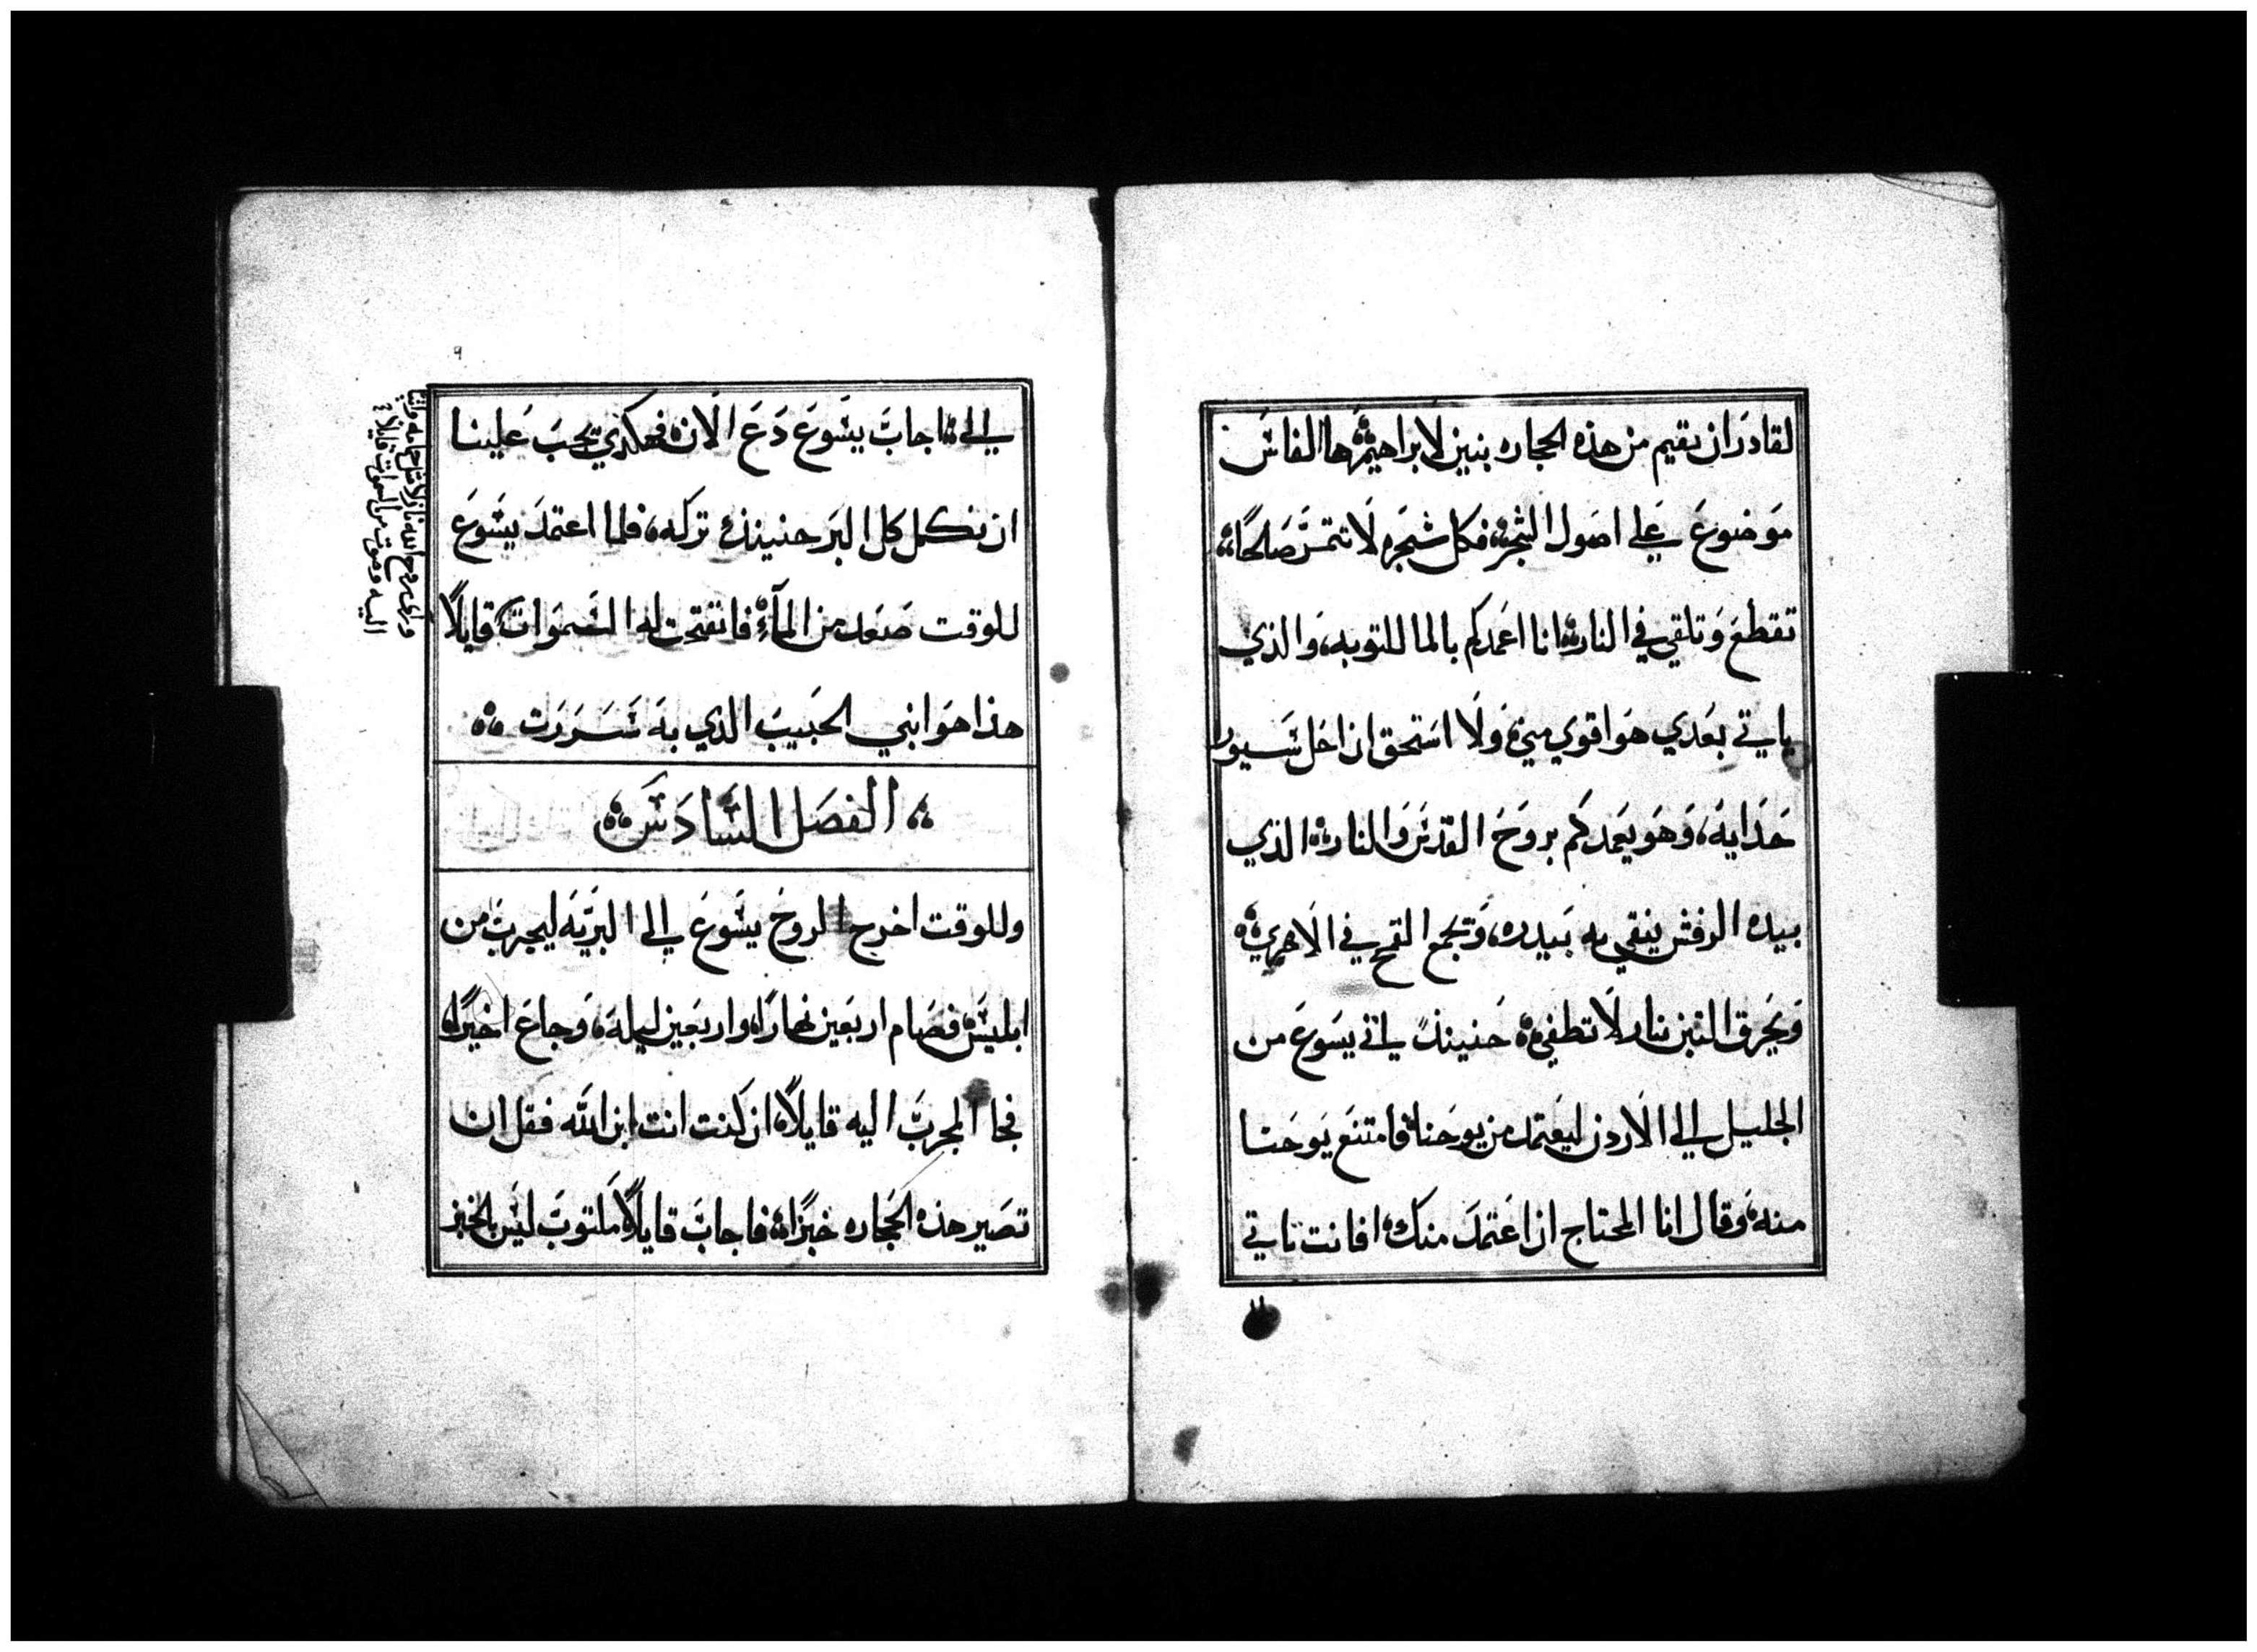 لقادر ان يقيم من هذه الحجاره بنين لابراهيم ها الفاس
موضوع علي اصول الشجر فكل شجره لا تتمر صالحًا
تقطع وتلقي في النار انا اعمدكم بالما للتوبه والذي
ياتي بعدي هو اقوي مني ولا استحق ان احل سيور
حدايه وهو يعمدكم بروح القدس والنار الذي
بيده الرفش ينقي به بيدره وتجمع القمح في الاهري
ويحرق التبن بنار لا تطفي حنينذ ياتي يسوع من
الجليل الي الاردن ليعتمد من يوحنا فامتنع يوحنا
منه وقال انا المحتاج ان اعتمد منك افانت تاتي
٩
الي اجاب يسوع دع الان فهكذي يجب علينا
ان نكمل كل البر حنينذ تركه فلما اعتمد يسوع
للوقت صعد من المآء فانفتحت له السموات قايلاً
هذا هو ابني الحبيب الذي به سررت
الفصل السادس
وللوقت اخرج الروح يسوع الي البريه ليجرب من
ابليس فصام اربعين نهارًا واربعين ليله وجاع اخيرًا
فجا المجرب اليه قايلاً ان كنت انت ابن الله فقل ان
تصير هذه الحجاره خبزًا فاجاب قايلاً مكتوب ليس بالخبز
وراي روح الله نازلا
اليه وصوت من السموات قايلا